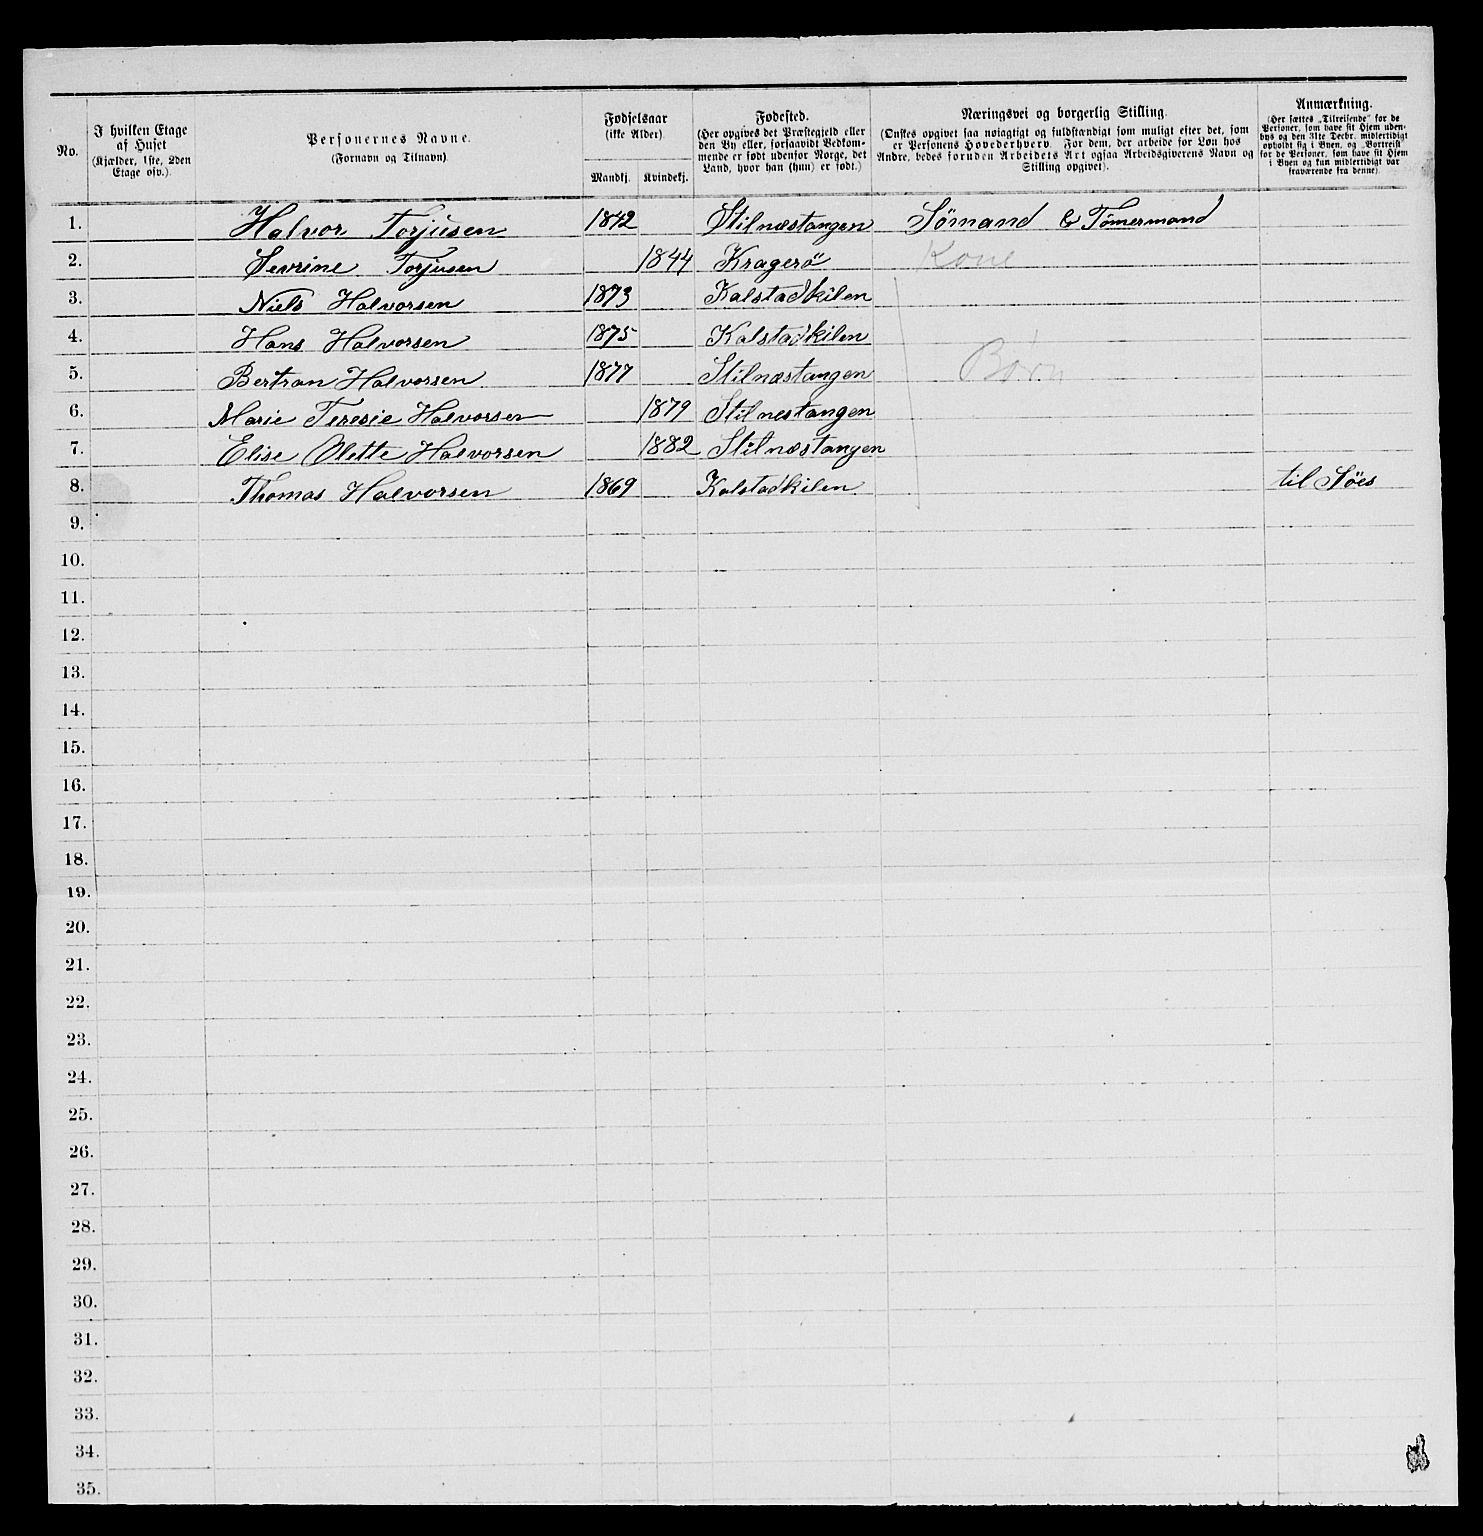 No.
I hvilken Etage af Huset (Kjælder, 1ste, 2den Etage osv.).
Personernes Navne. (Fornavn og Tilnavn).
Fødselsaar (ikke Alder).
Mandkj. Kvindekj.
Fødested. (Her opgives det Præstegjeld eller den By eller, forsaavidt Vedkommende er født udenfor Norge, det Land, hvor han (hun) er født.)
Næringsvei og borgerlig Stilling. (Ønskes opgivet saa nøiagtigt og fuldstændigt som muligt efter det, som er Personens Hovederhverv. For dem, der arbeide for Løn hos Andre, bedes foruden Arbeidets Art ogsaa Arbeidsgiverens Navn og Stilling opgivet).
Anmærkning. (Her sættes „Tilreisende" for de Personer, som have sit Hjem udenbys og den 31te Decbr. midlertidigt opholdt sig i Byen, og „Bortreist" for de Personer, som have sit Hjem i Byen og kun midlertidigt var fraværende fra denne)
1. Halvor Torjusen 1842 Stilnæstangen Sömand & Tömermand
2. Sevrine Torjusen 1844 Kragerö Kone
3. Niels Halvorsen 1873 Kalstadkilen
4. Hans Halvorsen 1875 Kalstadkilen
5. Bertran Halvorsen 1877 Stilnæstangen Børn
6. Marie Teresie Halvorsen 1879 Stilnestangen
7. Elise Olette Halvorsen 1882 Stilnæstangen
8. Thomas Halvorsen 1869 Kalstadkilen til Söes
9.
10.
11.
12.
13.
14.
15.
16.
17.
18.
19.
20.
21.
22.
23.
24.
25.
26.
27.
28.
29.
30.
31.
32.
33.
34.
35.